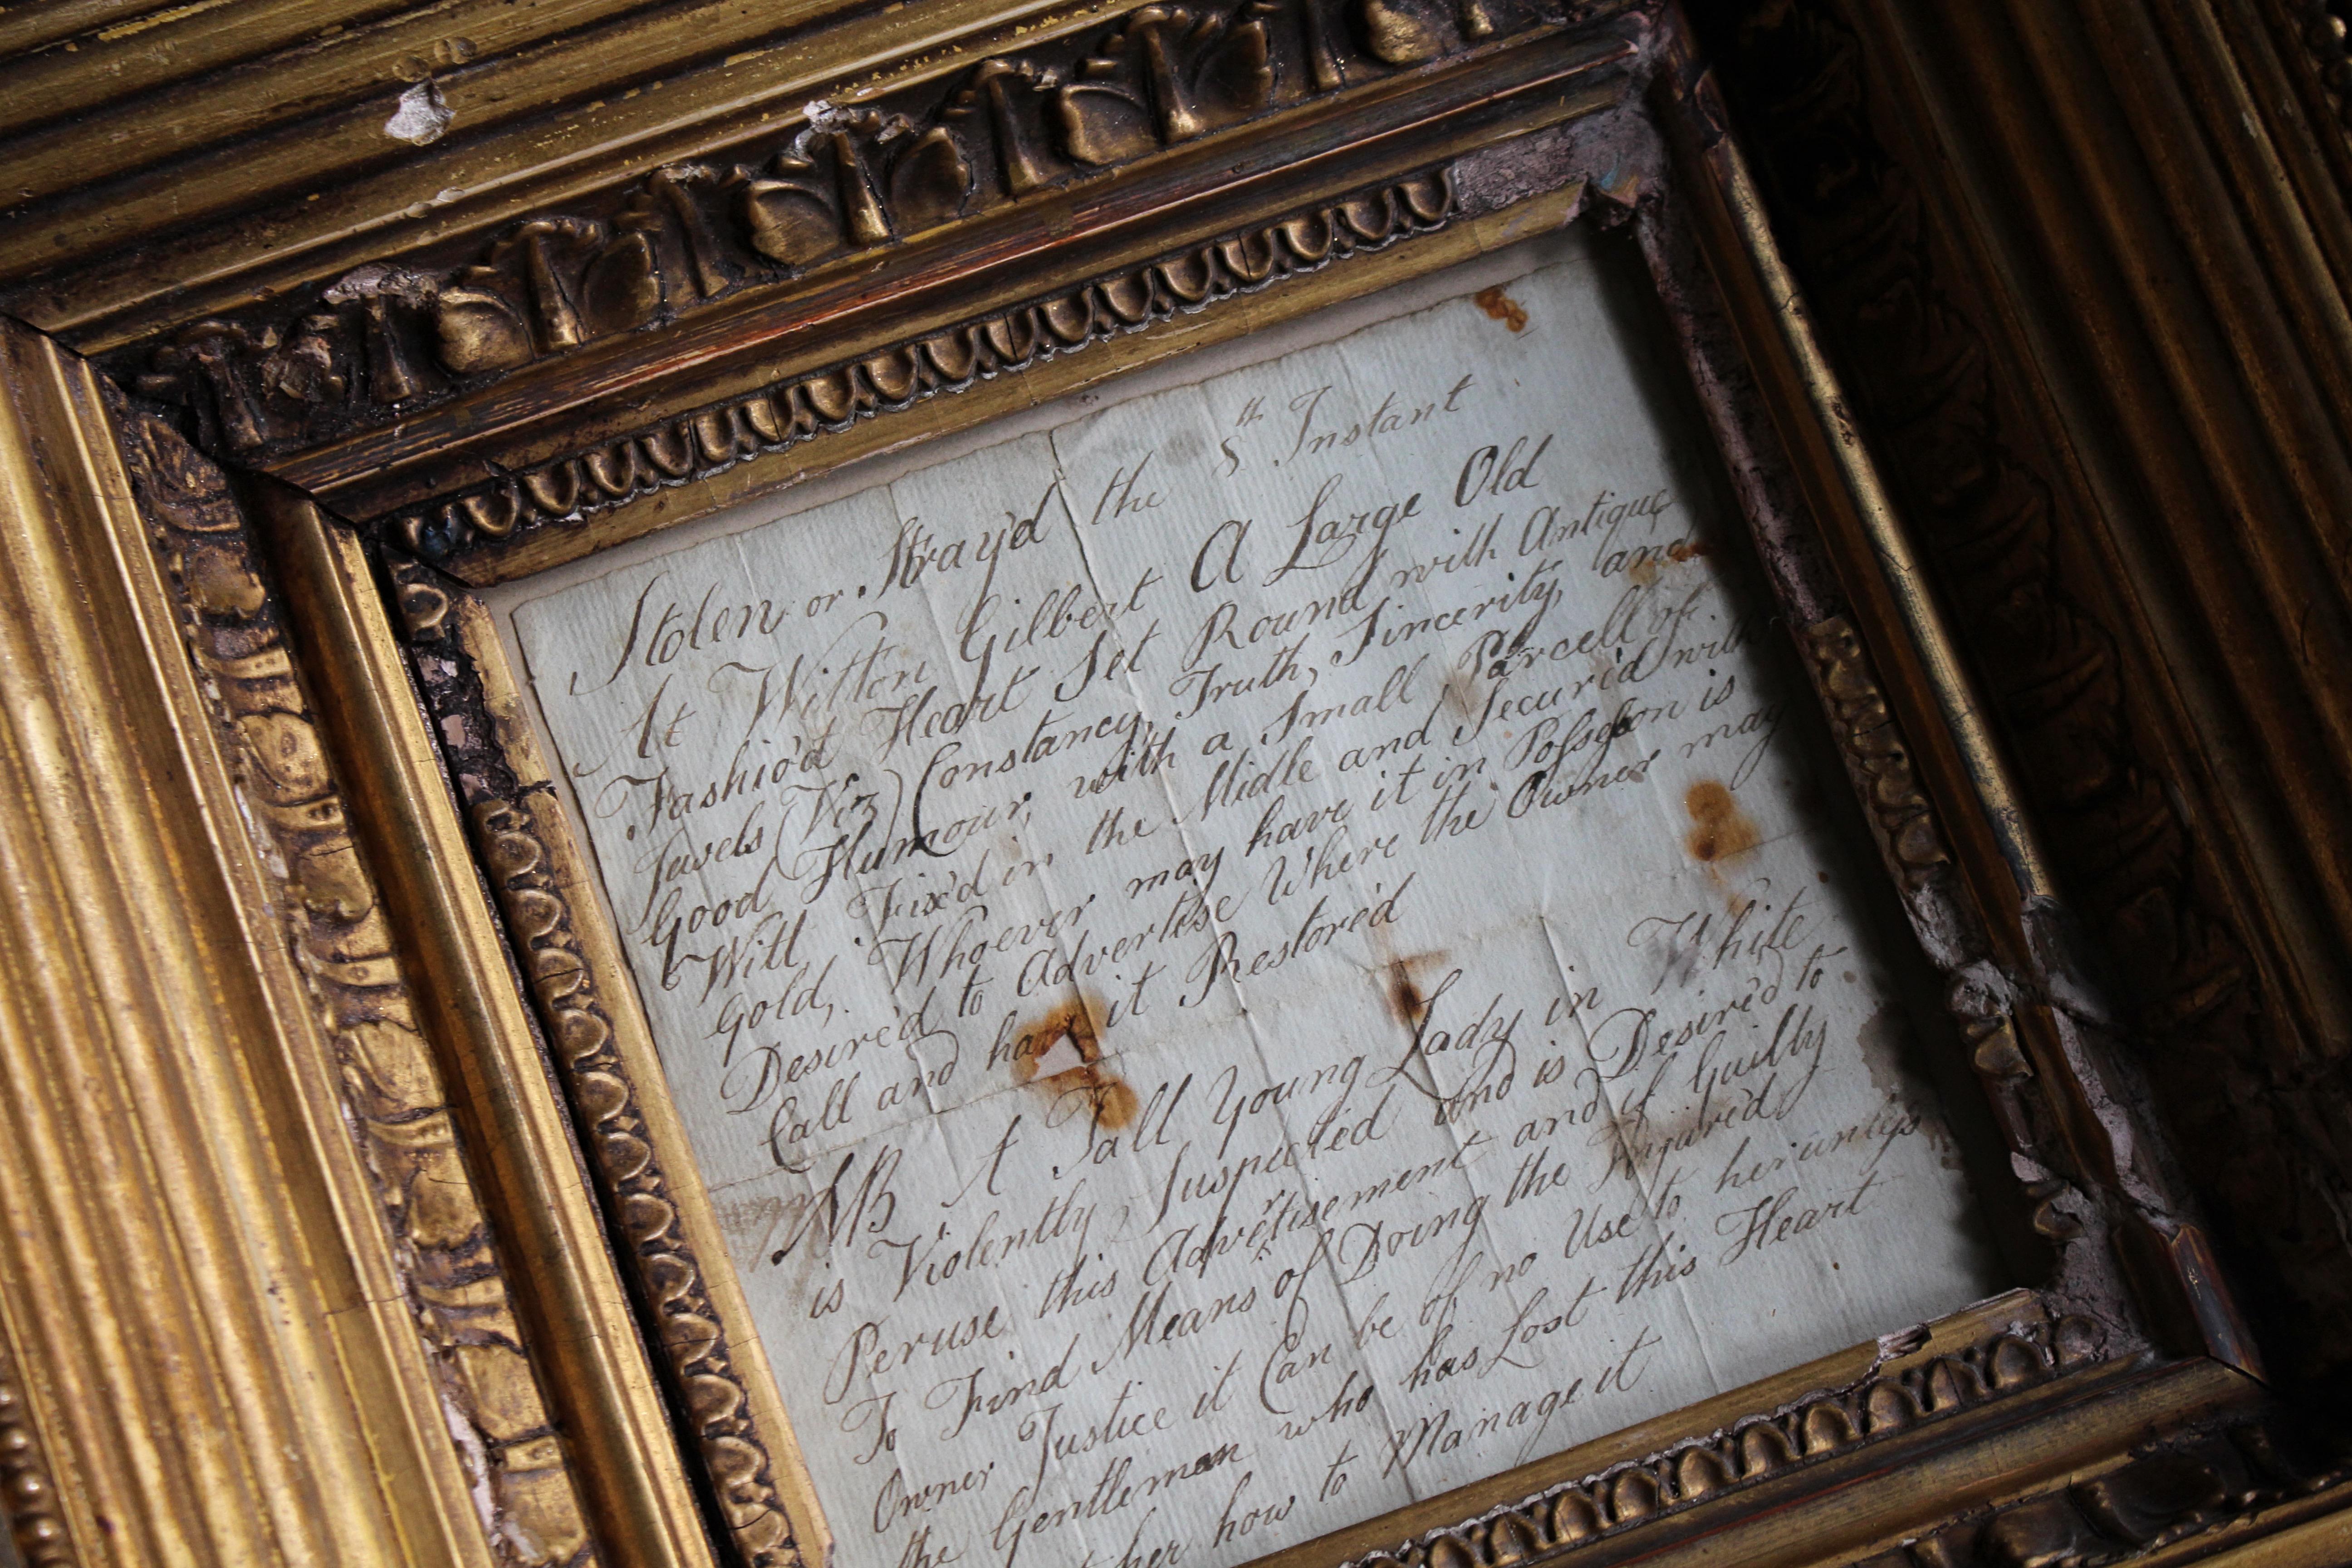 Stolen or Stray'd the 8th Instant
At Witton Gilbert A Large Old
Fashio'd Heart Set Round with Antique
Juvels (Viz) Constancy, Truth, Sincerity, and
Good Humour, with a Small Parcell of
Witt Fix'd in the Midle and Secur'd with
Gold, Whoever may have it in Posseson is
Desire'd to Advertise Where the Owner may
Call and have it Restore'd
NB A Tall Young Lady in White
is Violently Suspected and is Desire'd to
Peruse this Advertisement and if Guilty
To Find Means of Doing the Injure'd
Owner Justice it Can be of no Use to her unless
the Gentleman who has Lost this Heart
her how to Manage it